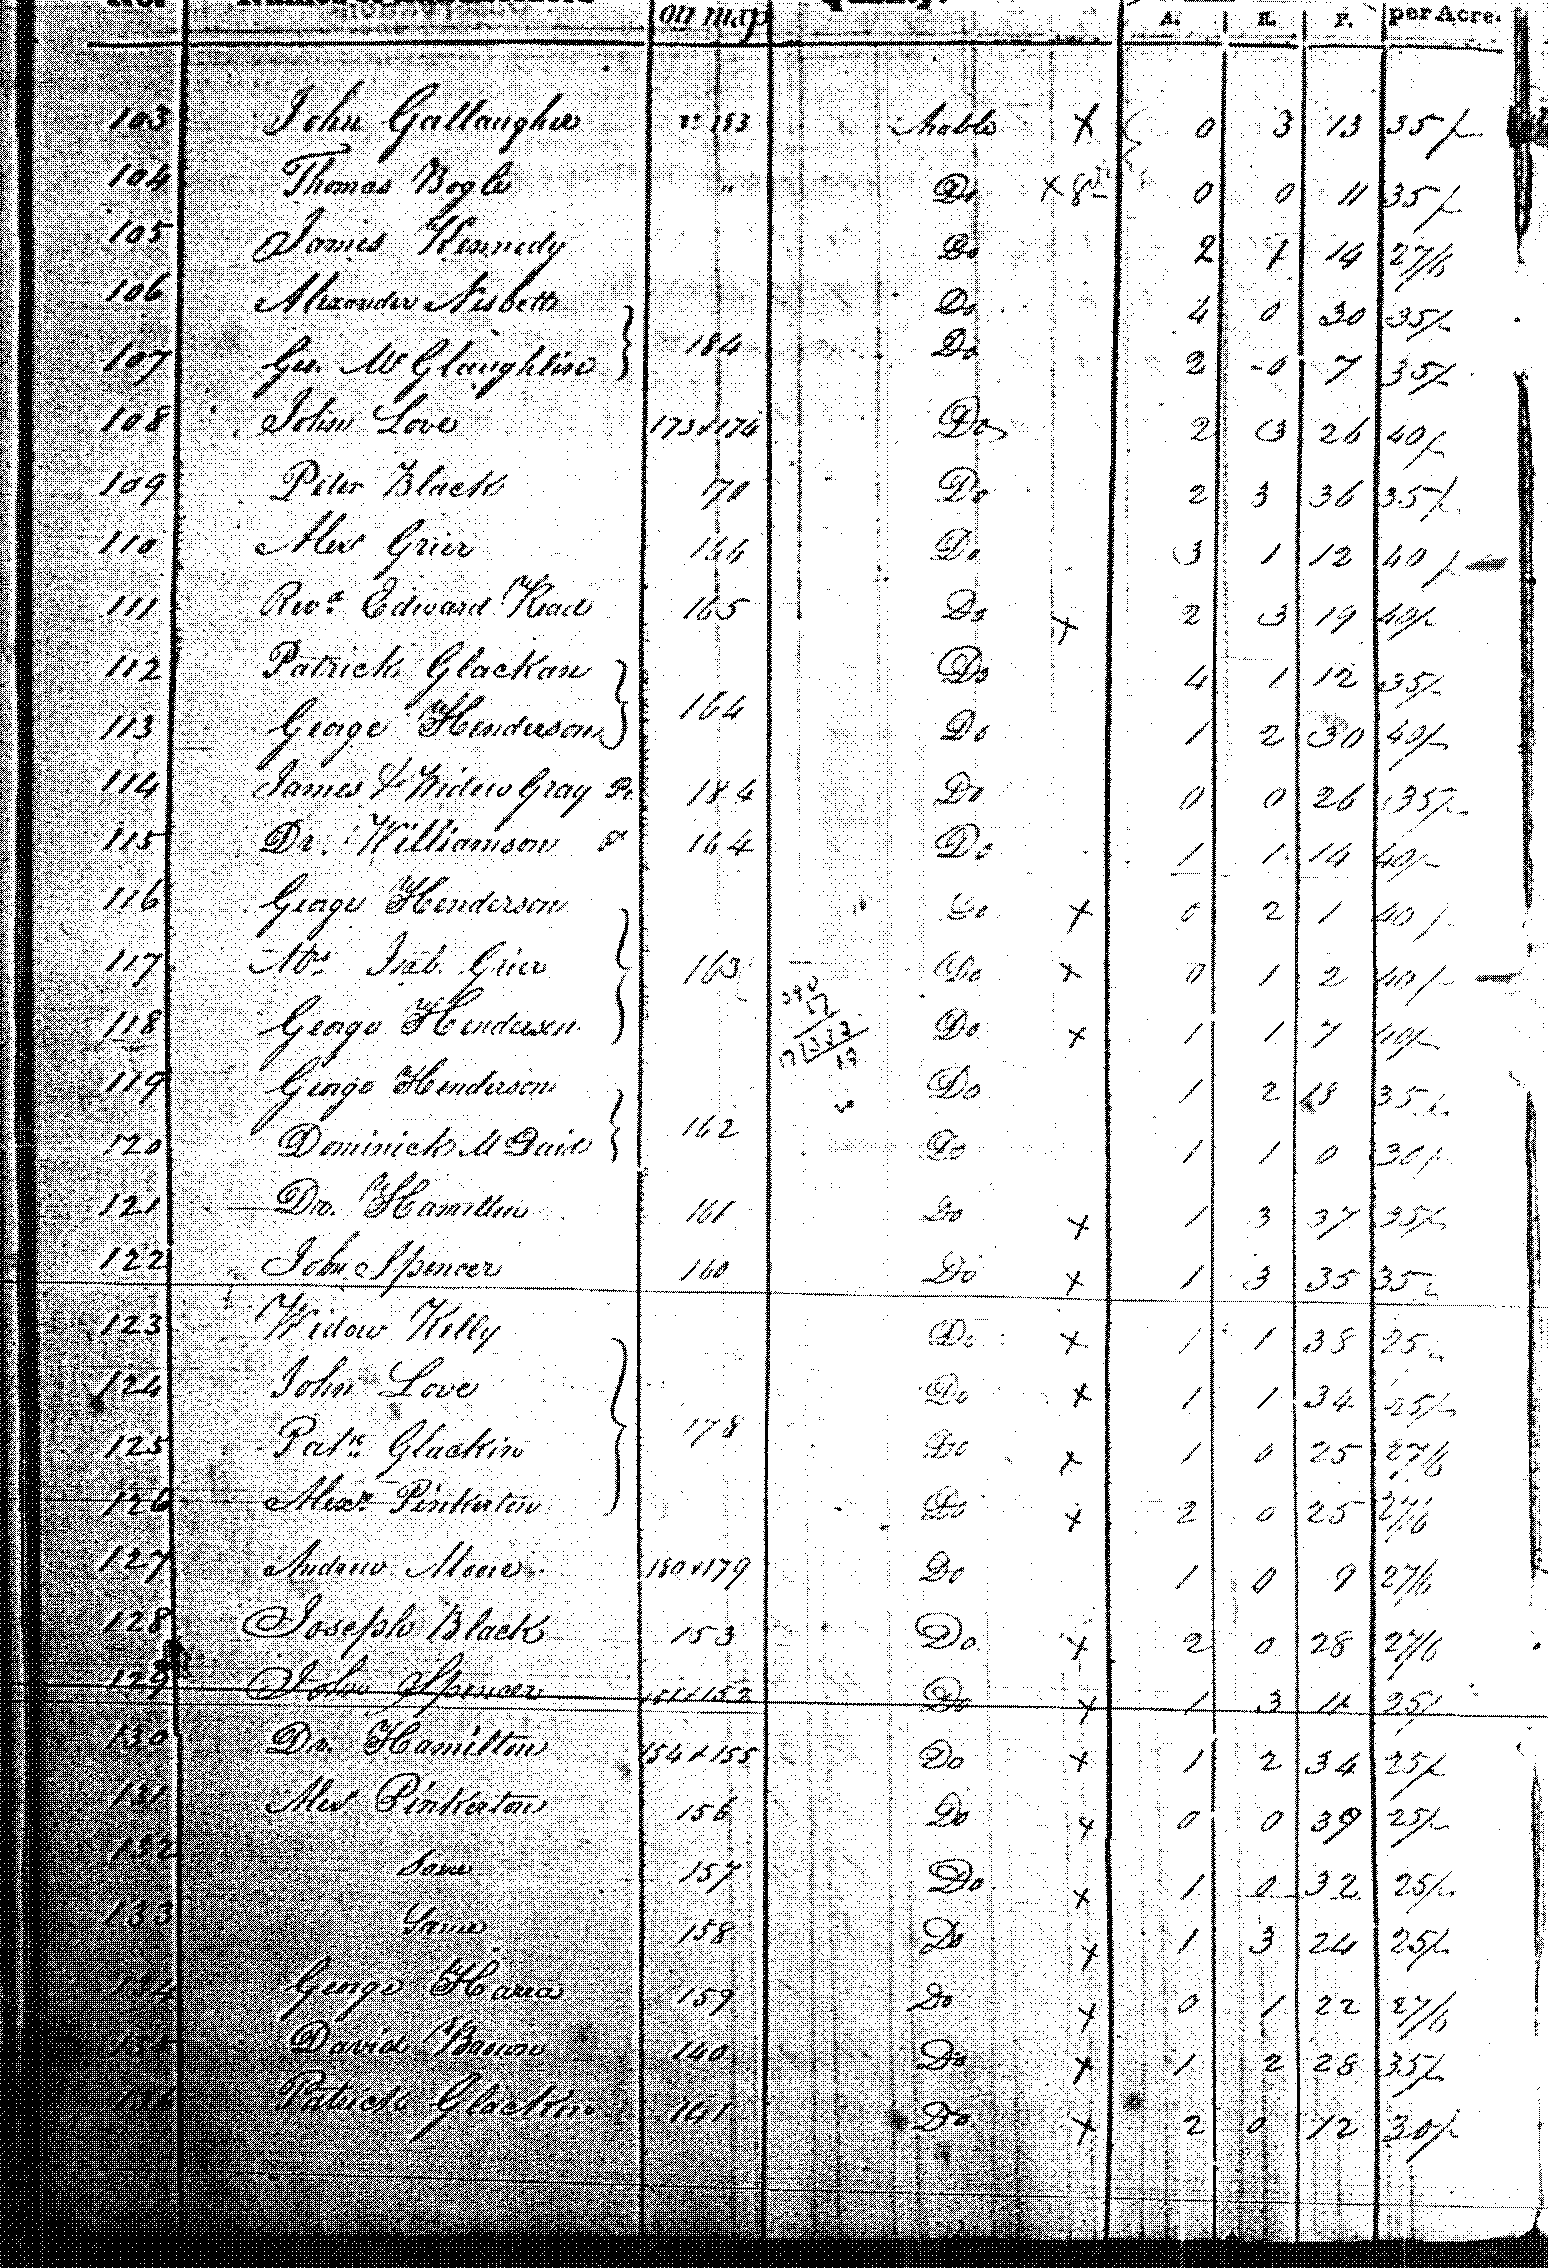 on map
A. R. P. per Acre.
103 John Gallaugher 183 Arable X 0 3 13 35/-
104 Thomas Bogle " Do X 0 0 11 35/-
105 James Kennedy Do 2 1 14 27/6
106 Alexander Nisbett Do 4 0 30 35/-
107 Geo. McGlaughlin 184 Do 2 0 7 35/-
108 John Love 173 & 174 Do 2 3 26 40/-
109 Peter Black 70 Do 2 3 36 35/-
110 Alexr Grier 166 Do 3 1 12 40/-
111 Revd Edward Kead 165 Do X 2 3 19 40/-
112 Patrick Glackan Do 4 1 12 35/-
113 George Henderson 164 Do 1 2 30 40/-
114 James & Widow Gray Pt 184 Do 0 0 26 35/-
115 Dr. Williamson 164 Do 1 1 14 40/-
116 George Henderson Do X 0 2 1 40/-
117 Mrs Isab. Grier 163 Do X 0 1 2 40/-
118 George Henderson Do X 1 1 7 40/-
119 George Henderson Do 1 2 18 35/-
120 Dominick McDaid 162 Do 1 1 0 30/-
121 Dr. Hamilton 161 Do X 1 3 37 35/-
122 John Spencer 160 Do X 1 3 35 35/-
123 Widow Kelly Do X 1 1 38 25/-
124 John Love Do X 1 1 34 25/-
125 Patk Glackin 178 Do X 1 0 25 27/6
126 Alexr Pinkerton Do X 2 0 25 27/6
127 Andrew Moore 180 & 179 Do 1 0 9 27/6
128 Joseph Black 153 Do X 2 0 28 27/6
129 John Spencer 151 & 152 Do X 1 3 11 25/-
130 Dr. Hamilton 154 & 155 Do X 1 2 34 25/-
131 Alexr Pinkerton 156 Do X 0 0 39 25/-
132 Same 157 Do X 1 0 32 25/-
133 Same 158 Do X 1 3 24 25/-
134 George 159 Do X 0 1 22 27/6
135 David Brown 140 Do X 1 2 28 35/-
136 Patrick Glackin 141 Do X 2 0 12 30/-